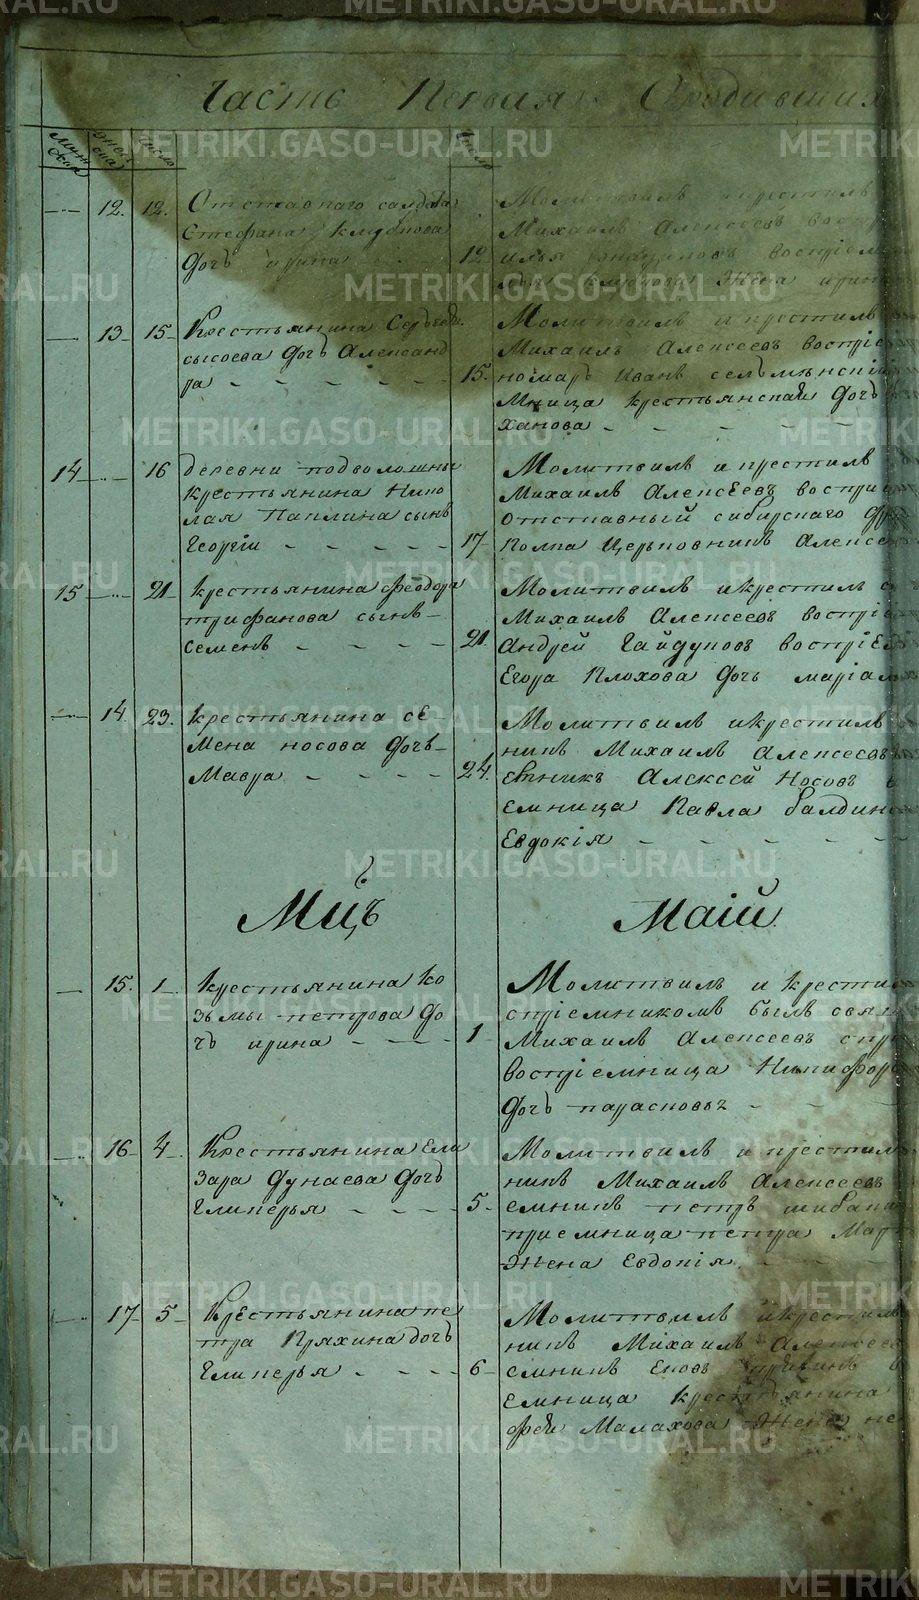 Часть Первая О родившихъ
Муж
еска
Женс
ска
Число
Число
12. 12. Отставнаго салдата
Стефана Клубкова
Дочь ирина
12
Молитвилъ и крестилъ
Михаилъ Алексеевъ воспр
илья воспріем
Жена ирин
13 15 Крестьянина Сергея
сысоева Дочь Александ
ра
15.
Молитвилъ и крестилъ
Михаилъ Алексеевъ воспріе
номарь Иванъ
мница крестьянская Дочь
ханова
14 16 деревни подволошны
Крестьянина Нико
лая Паплина сынъ
Георгіи
17
Молитвилъ и крестилъ
Михаилъ Алексеевъ воспри
отставный сибирскаго
полка Церьковникъ Алексе
15 21 Крестьянина феодора
трифанова сынъ
семенъ
21.
Молитвилъ икрестилъ с
Михаилъ Алексеевъ воспріе
Андрей Гайдуковъ воспріе
Егора Плохова Дочь маріа
14. 23. крестьянина се
мена носова Дочь
Мавра
24.
Молитвилъ икрестилъ
никъ Михаилъ Алексеевъ
емникъ Алексей Носовъ в
емница Павла балдин
Евдокія
Мцъ Маій
15. 1 Крестьянина ко
зьмы петрова до
чъ ирина
1
Молитвилъ и крестил
спріемникомъ былъ свя
Михаилъ Алексеевъ
воспріемница Никифор
Дочь парасковья
16 4 Крестьянина Ела
зара дунаева дочь
Гликерья
5
Молитвилъ и крестилъ
никъ Михаилъ Алексеевъ
емникъ петръ шибан
приемница петра Мар
Жена Евдокія
17 5 Крестьянина пе
тра Пряхина дочь
Гликерья
6
Молитвилъ икрестилъ
никъ Михаилъ Алексеев
емникъ
емница Крестьянина
фей Малахова Жена
METRIKI.GASO-URAL.RU